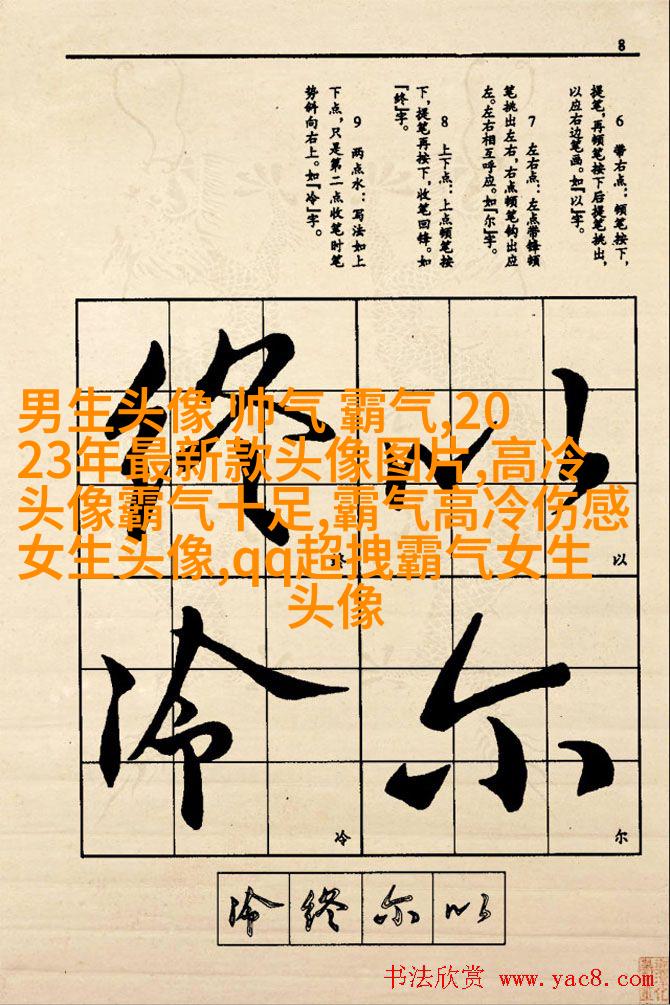 8
6 带右点：顿笔按下，
提笔，再顿笔按下后提笔挑出，
以应右边笔画。如『以』字。
7 左右点：左点带锋顿
笔挑出左右，右点顿笔钩出应
左。左右相互呼应。如『尔』字。
8 上下点：上点顿笔按
下，提笔再按下，收笔回锋。如
『终』字。
9 两点水：写法如上
下点，只是第二点收笔时笔
势斜向右上。如『冷』字。
男生头像 帅气 霸气,20
23年最新款头像图片,高冷
头像霸气十足,霸气高冷伤感
女生头像,qq超拽霸气女生
头像
终 以
终 以
冷 尔
冷 尔
冷 终 尔 以
书法欣赏 www.yac8.com